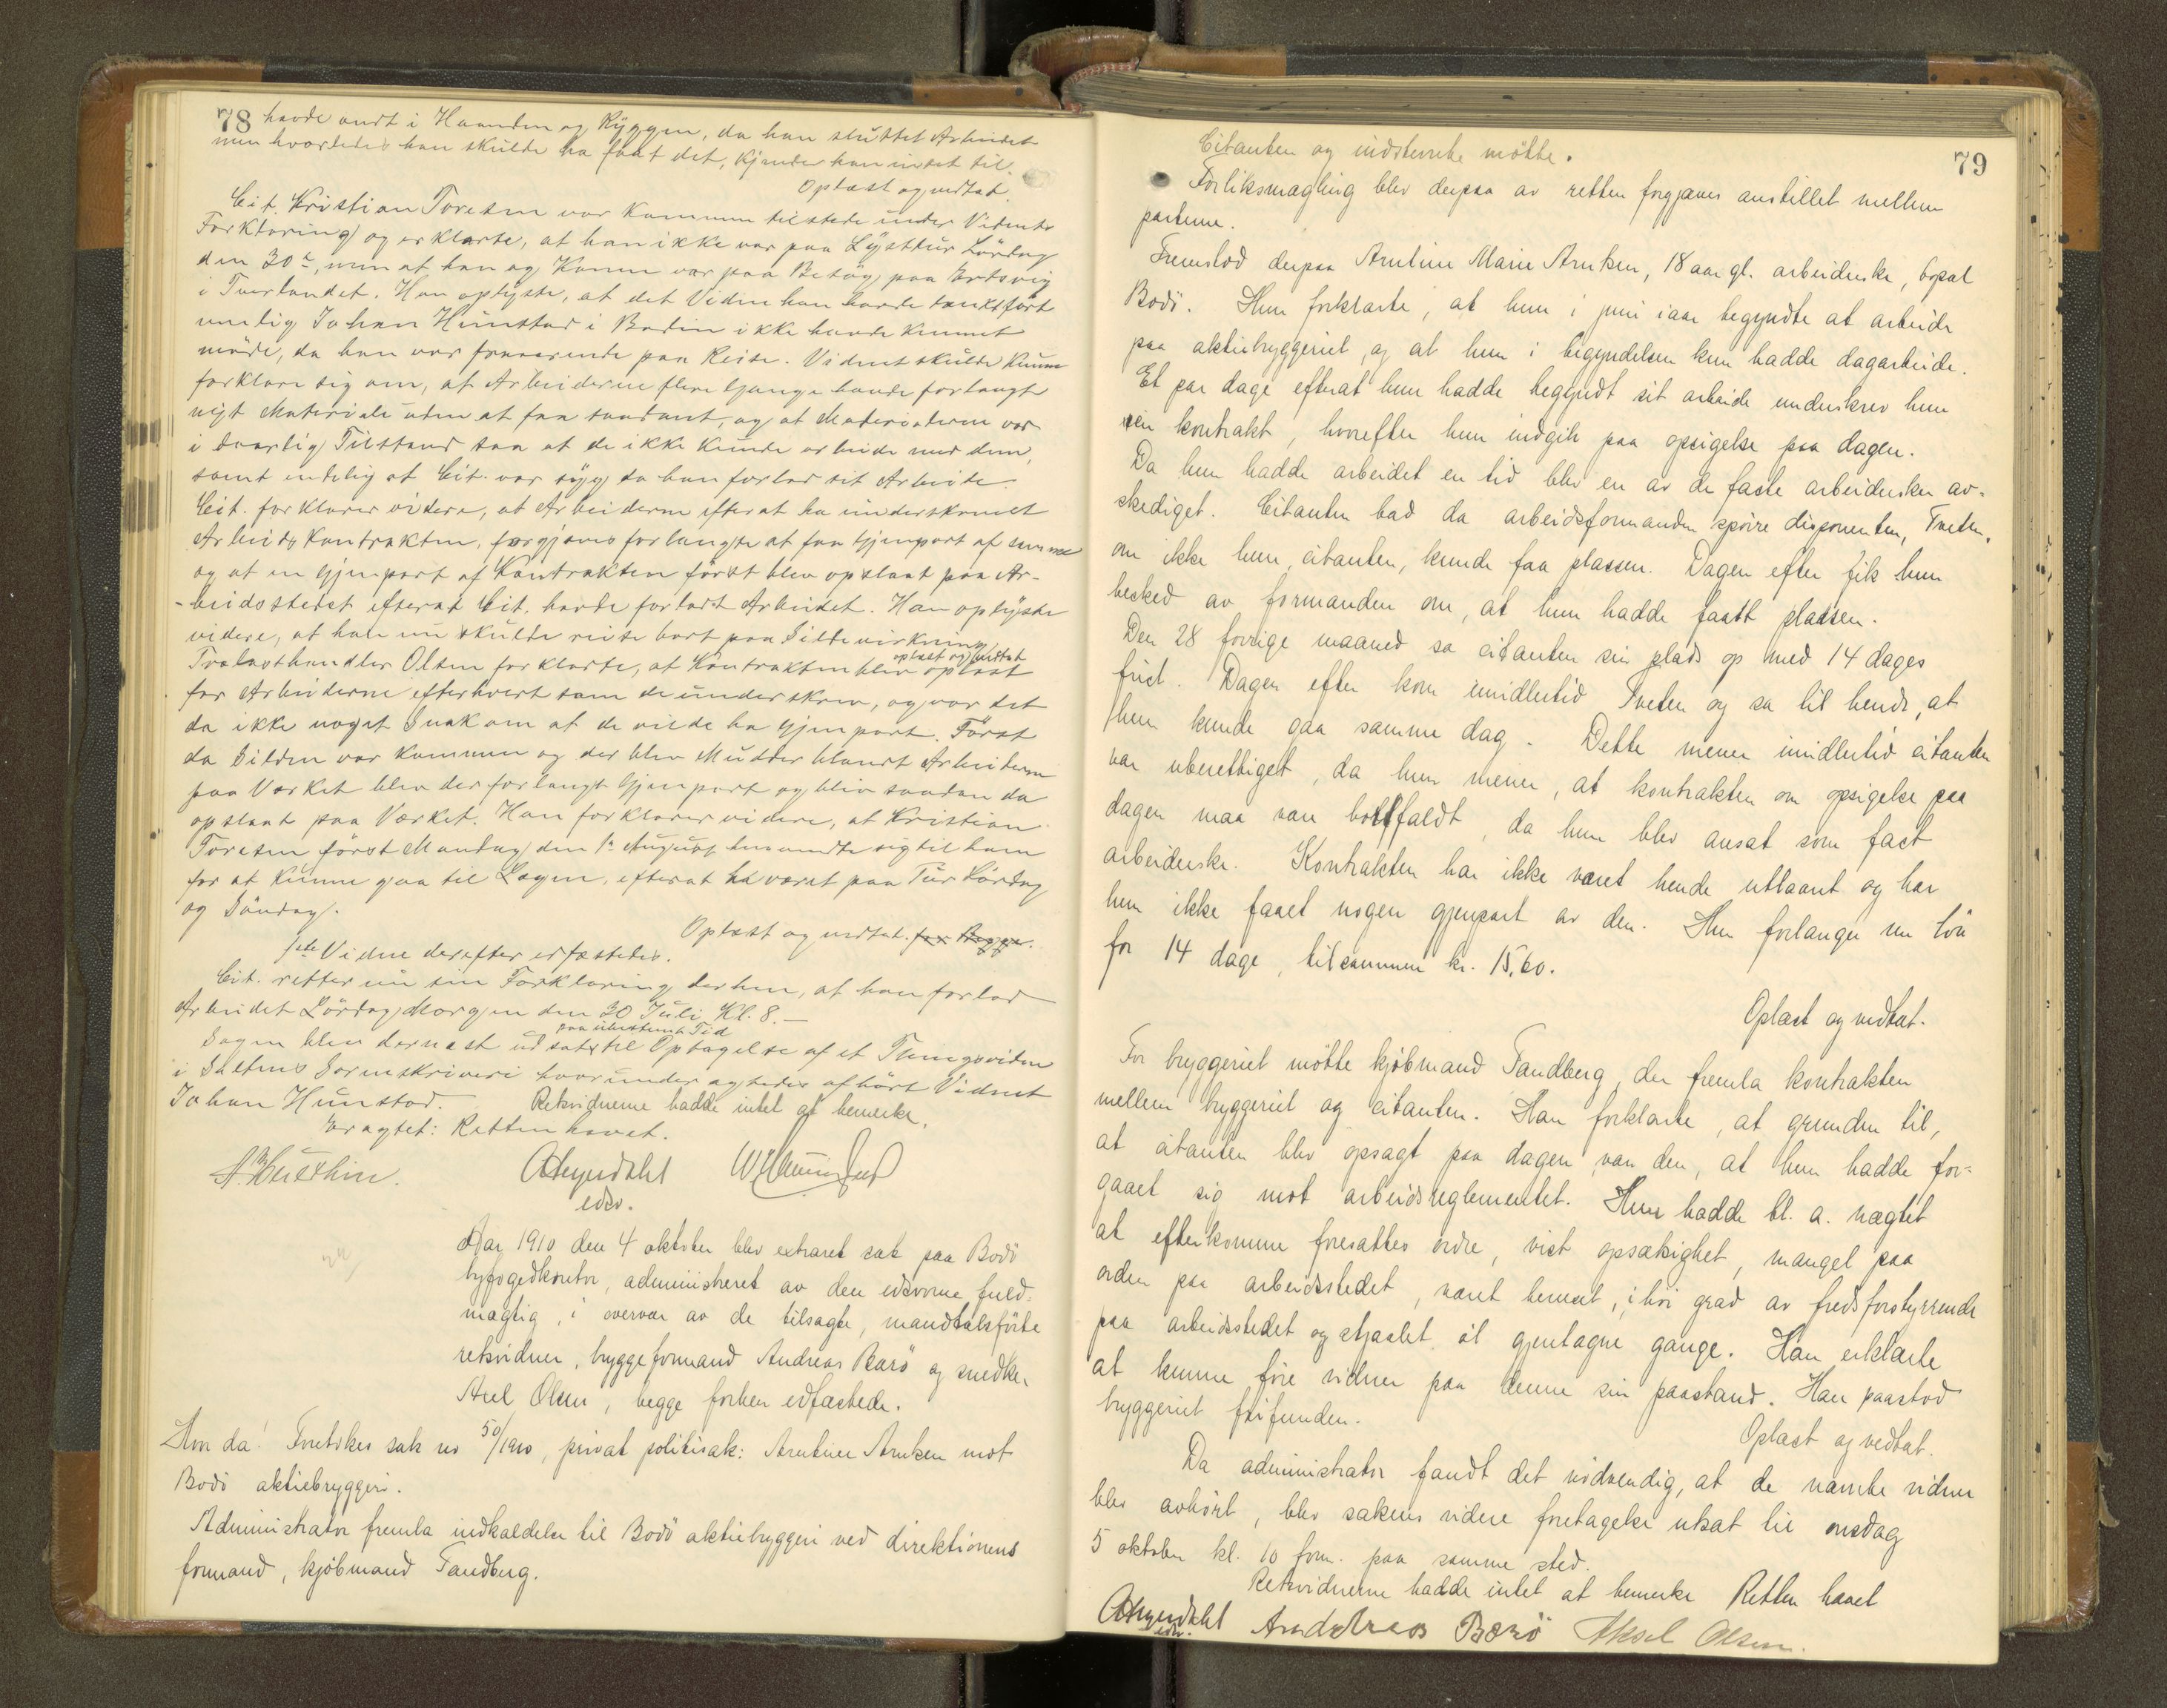 78 havde ondt i Haanden og Ryggen, da han sluttet Arbeidet
men hvorledes han skulde ha faat det, kjender han intet til.
Oplæst og vedtat.
Cit. Kristian Toresen var kommen tilstede under Vidnets
Forklaring og erklærte, at han ikke var paa Lysttur Lördag
den 30te, men at han og Konen var paa Besög paa
i Tverlandet. Han oplyste, at det Vidne han havde tænkt fört
nemlig Johan Hunstad i Bodin ikke havde kunnet
möde, da han var fraværende paa Reise. Vidnet skulde kunne
forklare sig om, at Arbeiderne flere Gange havde forlangt
nyt Materiale uten at faa saadant, og at Materialerne var
i daarlig Tilstand saa at de ikke kunde arbeide med dem,
samt endelig at Cit. var syg da han forlod sit Arbeide.
Cit. forklarer videre, at Arbeiderne efterat ha underskrevet
Arbeidskontrakten, forgjæves forlangte at faa Gjenpart af samme
og at en Gjenpart af Kontrakten först blev opslaat paa Ar-
-beidsstedet efterat Cit. havde forladt Arbeidet. Han oplyste
videre, at han nu skulde reise bort paa Sildevirkning.
oplæst og vedtat
Trælasthandler Olsen forklarte, at Kontrakten blev oplæst
for Arbeiderne efterhvert som de underskrev, og var det
da ikke noget Snak om at de vilde ha Gjenpart. Först
da Silden var kommen og der blev Mudder blandt Arbeiderne
paa Værket blev der forlangt Gjenpart og blev saadan da
opslaat paa Værket. Han forklarer videre, at Kristian
Toresen först Mandag den 1te August henvendte sig til ham
for at kunne gaa til Lægen, efterat ha været paa Tur Lördag
og Söndag.
Oplæst og vedtat. for Begge.
1ste Vidne derefter edfæstedes.
Cit. retter nu sin Forklaring derhen, at han forlod
Arbeidet Lördag Morgen den 30 Juli Kl. 8.-
paa ubestemt Tid
Sagen blev dernæst udsat til Optagelse af et Tingsvidne
i Saltens Sorenskriveri hvorunder agtedes afhört Vidnet
Johan Hunstad. Retsvidnerne hadde intet at bemerke.
Eragtet: Retten hævet.
edsv.
Aar 1910 den 4 oktober blev extraret sat paa Bodö
byfogedkontor, administreret av den edsvorne fuld-
mægtig, i overvær av de tilsagte, mandtalsförte
retsvidner, bryggeformand Andreas Barö og snedker
Axel Olsen, begge forhen edfæstede.
Hvor da! Foretokes sak no 50/1910, privat politisak: Arntine Arntsen mot
Bodö aktiebryggeri.
Administrator fremla indkaldelse til Bodö aktiebryggeri ved direktionens
formand, kjöbmand Tandberg.
79
Citanten og indstevnte mötte.
Forliksmægling blev derpaa av retten forgjæves anstillet mellem
parterne.
Fremstod derpaa Arntine Marie Arntsen, 18 aar gl. arbeiderske, bopæl
Bodö. Hun forklarte, at hun i juni iaar begyndte at arbeide
paa aktiebryggeriet, og at hun i begyndelsen kun hadde dagarbeide.
Et par dage efterat hun hadde begyndt sit arbeide underskrev hun
en kontrakt, hvorefter hun indgik paa opsigelse paa dagen.
Da hun hadde arbeidet en tid blev en av de faste arbeidersker av-
skediget. Citanten bad da arbeidsformanden spörre disponenten, Tveten,
om ikke hun, citanten, kunde faa plassen. Dagen efter fik hun
besked av formanden om, at hun hadde faatt plassen.
Den 28 forrige maaned sa citanten sin plads op med 14 dages
frist. Dagen efter kom imidlertid Tveten og sa til hende, at
hun kunde gaa samme dag. Dette mener imidlertid citanten
var uberettiget, da hun mener, at kontrakten om opsigelse paa
dagen maa være bortfaldt, da hun blev ansat som fast
arbeiderske. Kontrakten har ikke været hende utlaant og har
hun ikke faaet nogen gjenpart av den. Hun forlanger nu lön
for 14 dage, tilsammen kr. 15,60.
Oplæst og vedtat.
For bryggeriet mötte kjöbmand Tandberg, der fremla kontrakten
mellem bryggeriet og citanten. Han forklarte, at grunden til,
at citanten blev opsagt paa dagen var den, at hun hadde for-
gaaet sig mot arbeidsreglementet. Hun hadde bl. a. nægtet
at efterkomme foresattes ordre, vist opsætsighet, mangel paa
orden paa arbeidsstedet, været beruset, i höi grad av fredsforstyrrende
paa arbeidsstedet og stjaalet öl gjentagne gange. Han erklærte
at kunne före vidner paa denne sin paastand. Han paastod
bryggeriet frifunden.
Oplæst og vedtat.
Da administrator fandt det nödvendig, at de nævnte vidner
blev avhört, blev sakens videre foretagelse utsat til onsdag
5 oktober kl. 10 form. paa samme sted.
Retsvidnerne hadde intet at bemerke Retten hævet
edsv. Andreas Barö Aksel Olsen.